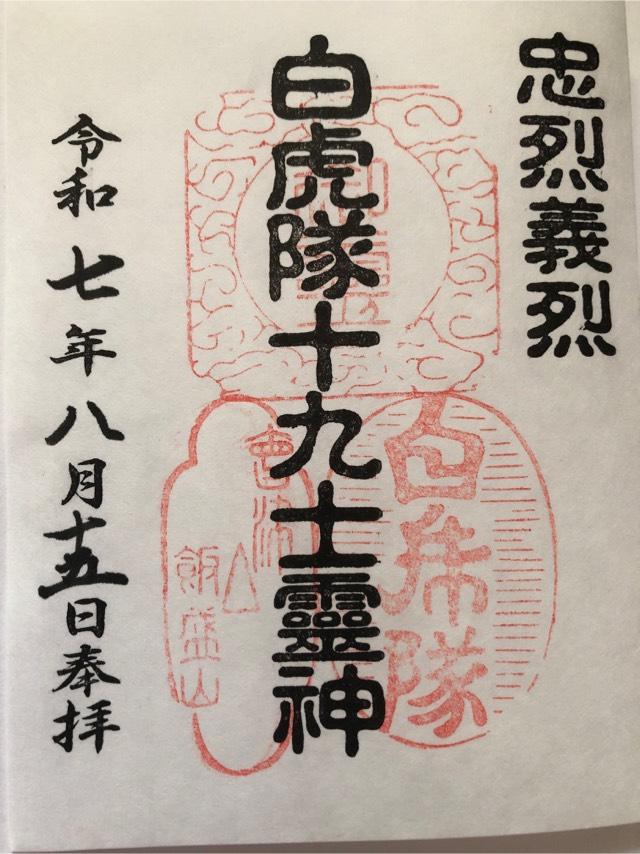 忠烈義烈
白虎隊十九士靈神
白虎隊
會津
飯盛山
令和七年八月十五日奉拝